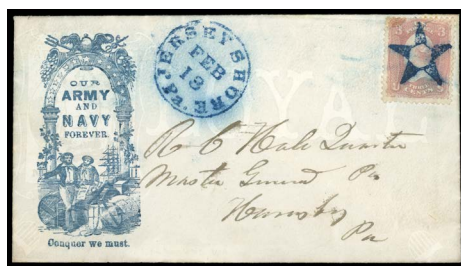 OUR
ARMY
AND
NAVY
FOREVER.
Conquer we must.
JERSEY SHORE Pa.
FEB
13
3 3
R C Hale Quarter
Master General Pa
Harrisbg
Pa